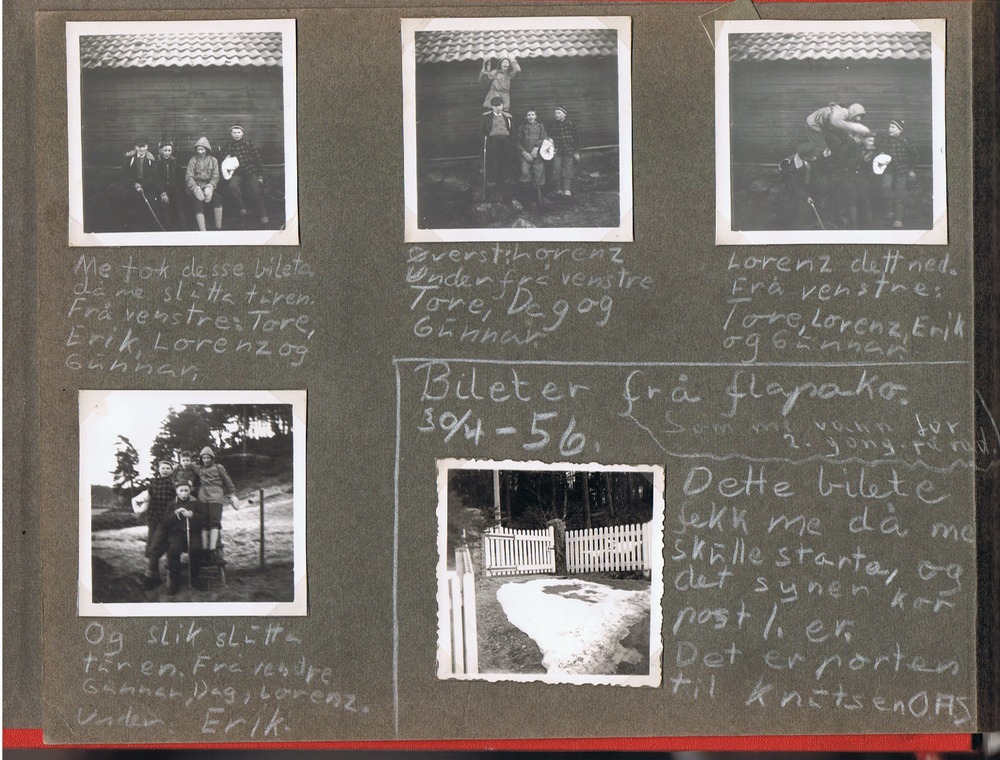 Me tok desse bileta
då me slutta turen.
Frå venstre: Tore,
Erik, Lorenz og
Gunnar.
Øverst: Lorenz
Under frå venstre
Tore, Dag og
Gunnar.
Lorenz dett ned.
Frå venstre:
Tore, Lorenz, Erik
og Gunnar
Og slik slutta
turen. Frå vendre
Gunnar, Dag, Lorenz.
Under: Erik.
Bileter frå flapako.
30/4 - 56.
Som me vann for
2. gong på rad
Dette bilete
fekk me då me
skulle starta, og
det syner kor
post 1. er.
Det er porten
til KnutsenOAS